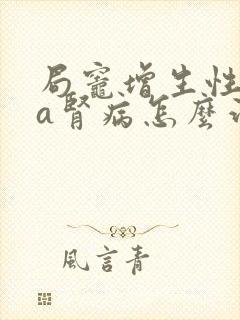 局竈增生性
a腎病怎麼
風言青